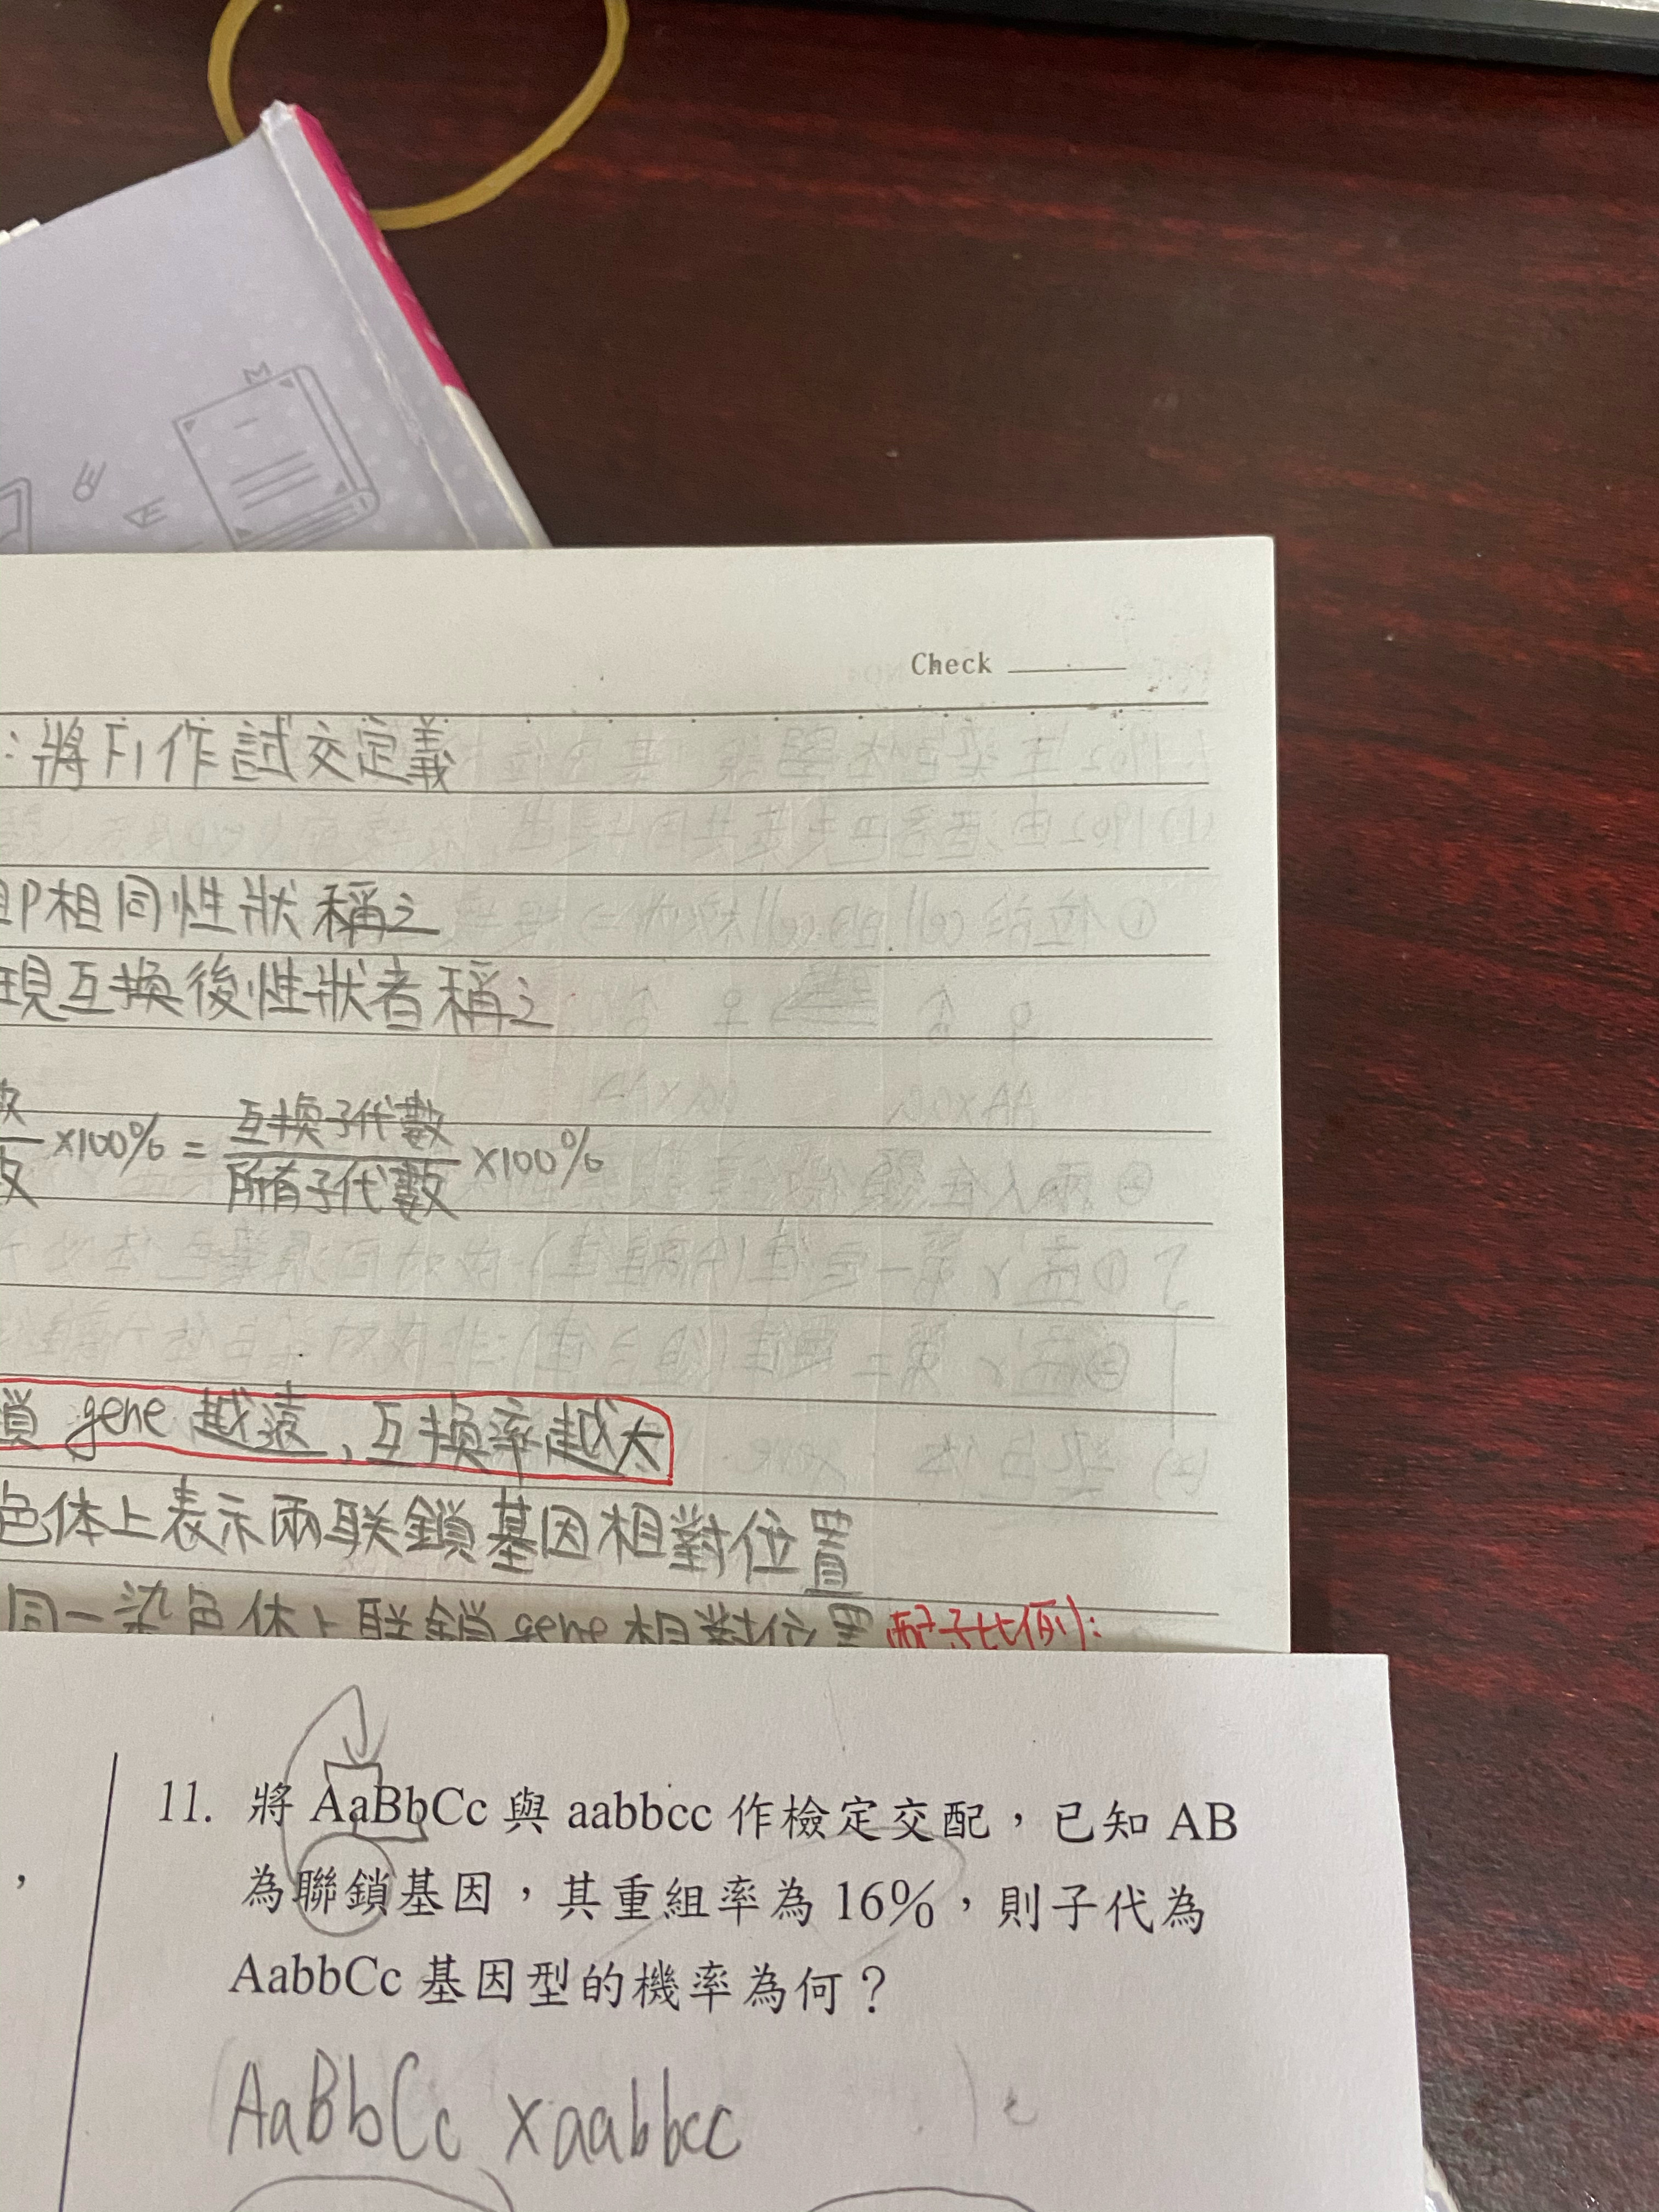 Check
：將F1作試交定義
即相同性狀稱之
現互換後性狀者稱之
×100% = 互換子代數 ×100%
所有子代數
鎖 gene 越遠，互換率越大
色体上表示兩联鎖基因相對位置
同一染色体上联鎖 gene 相對位置 配子比例)：
11. 將 AaBbCc 與 aabbcc 作檢定交配，已知 AB
為聯鎖基因，其重組率為 16%，則子代為
，
AabbCc 基因型的機率為何？
AaBbCc x aabbcc